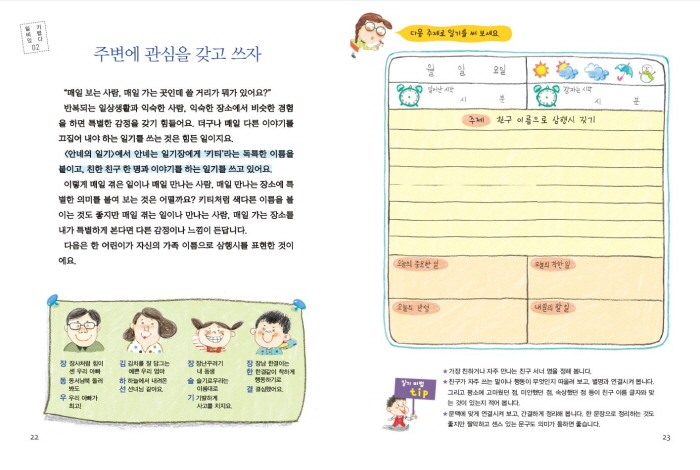 02
주변에 관심을 갖고 쓰자
“매일 보는 사람, 매일 가는 곳인데 쓸 거리가 뭐가 있어요?”
반복되는 일상생활과 익숙한 사람, 익숙한 장소에서 비슷한 경험
을 하면 특별한 감정을 갖기 힘들어요. 더구나 매일 다른 이야기를
끄집어 내야 하는 일기를 쓰는 것은 힘든 일이지요.
〈안네의 일기〉에서 안네는 일기장에게 ‘키티’라는 독특한 이름을
붙이고, 친한 친구 한 명과 이야기를 하는 일기를 쓰고 있어요.
이렇게 매일 겪은 일이나 매일 만나는 사람, 매일 만나는 장소에 특
별한 의미를 붙여 보는 것은 어떨까요? 키티처럼 색다른 이름을 붙
이는 것도 좋지만 매일 겪는 일이나 만나는 사람, 매일 가는 장소를
내가 특별하게 본다면 다른 감정이나 느낌이 든답니다.
다음은 한 어린이가 자신의 가족 이름으로 삼행시를 표현한 것이
에요.
장 장사처럼 힘이
센 우리 아빠
동 동서남북 둘러
봐도
우 우리 아빠가
최고!
김 김치를 잘 담그는
예쁜 우리 엄마
하 하늘에서 내려온
선 선녀님 같아요.
장 장난꾸러기
내 동생
슬 슬기로우라는
이름대로
기 기발하게
사고를 치지요.
장 장남 한결이는
한 한결같이 착하게
행동하기로
결 결심했어요.
22
다음 주제로 일기를 써 보세요.
월 일 요일
일어난 시각
시 분
잠자는 시각
시 분
주제 친구 이름으로 삼행시 짓기
오늘의 중요한 일
오늘의 착한 일
오늘의 반성
내일의 할 일
일기 비법
tip
★ 가장 친하거나 자주 만나는 친구 서너 명을 정해 봅니다.
★ 친구가 자주 쓰는 말이나 행동이 무엇인지 떠올려 보고, 별명과 연결시켜 봅니다.
그리고 평소에 고마웠던 점, 미안했던 점, 속상했던 점 등이 친구 이름 글자와 맞
는 것이 있는지 적어 봅니다.
★ 문맥에 맞게 연결시켜 보고, 간결하게 정리해 봅니다. 한 문장으로 정리하는 것도
좋지만 짤막하고 센스 있는 문구도 의미가 통하면 좋습니다.
23